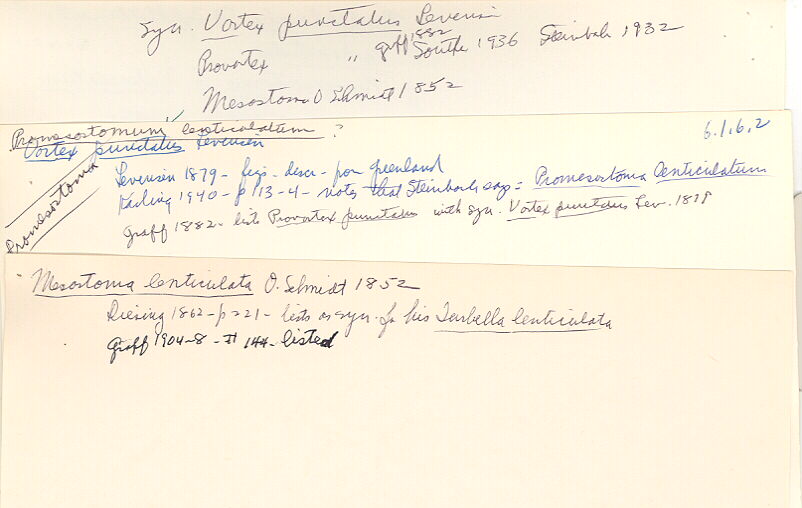 syn. Vortex punctatus Levensen
Provortex " Graff 1882 Southe 1936 Steinbock 1932
Mesostoma O Schmidt 1852
Promesostomum lenticulatum ?
Vortex punctatus Levensen
6.1.6.2
Promesostoma
Levensen 1879 - figs. descr - for Greenland
Karling 1940 - p 13-4 - notes that Steinbock says = Promesostoma lenticulatum
Graff 1882 - lists Provortex punctatus with syn. Vortex punctatus Lev. 1879
" Mesostoma lenticulata O. Schmidt 1852
Diesing 1862 - p 221 - lists as syn. for his Turbella lenticulata
Graff 1904-8 - # 144 - listed